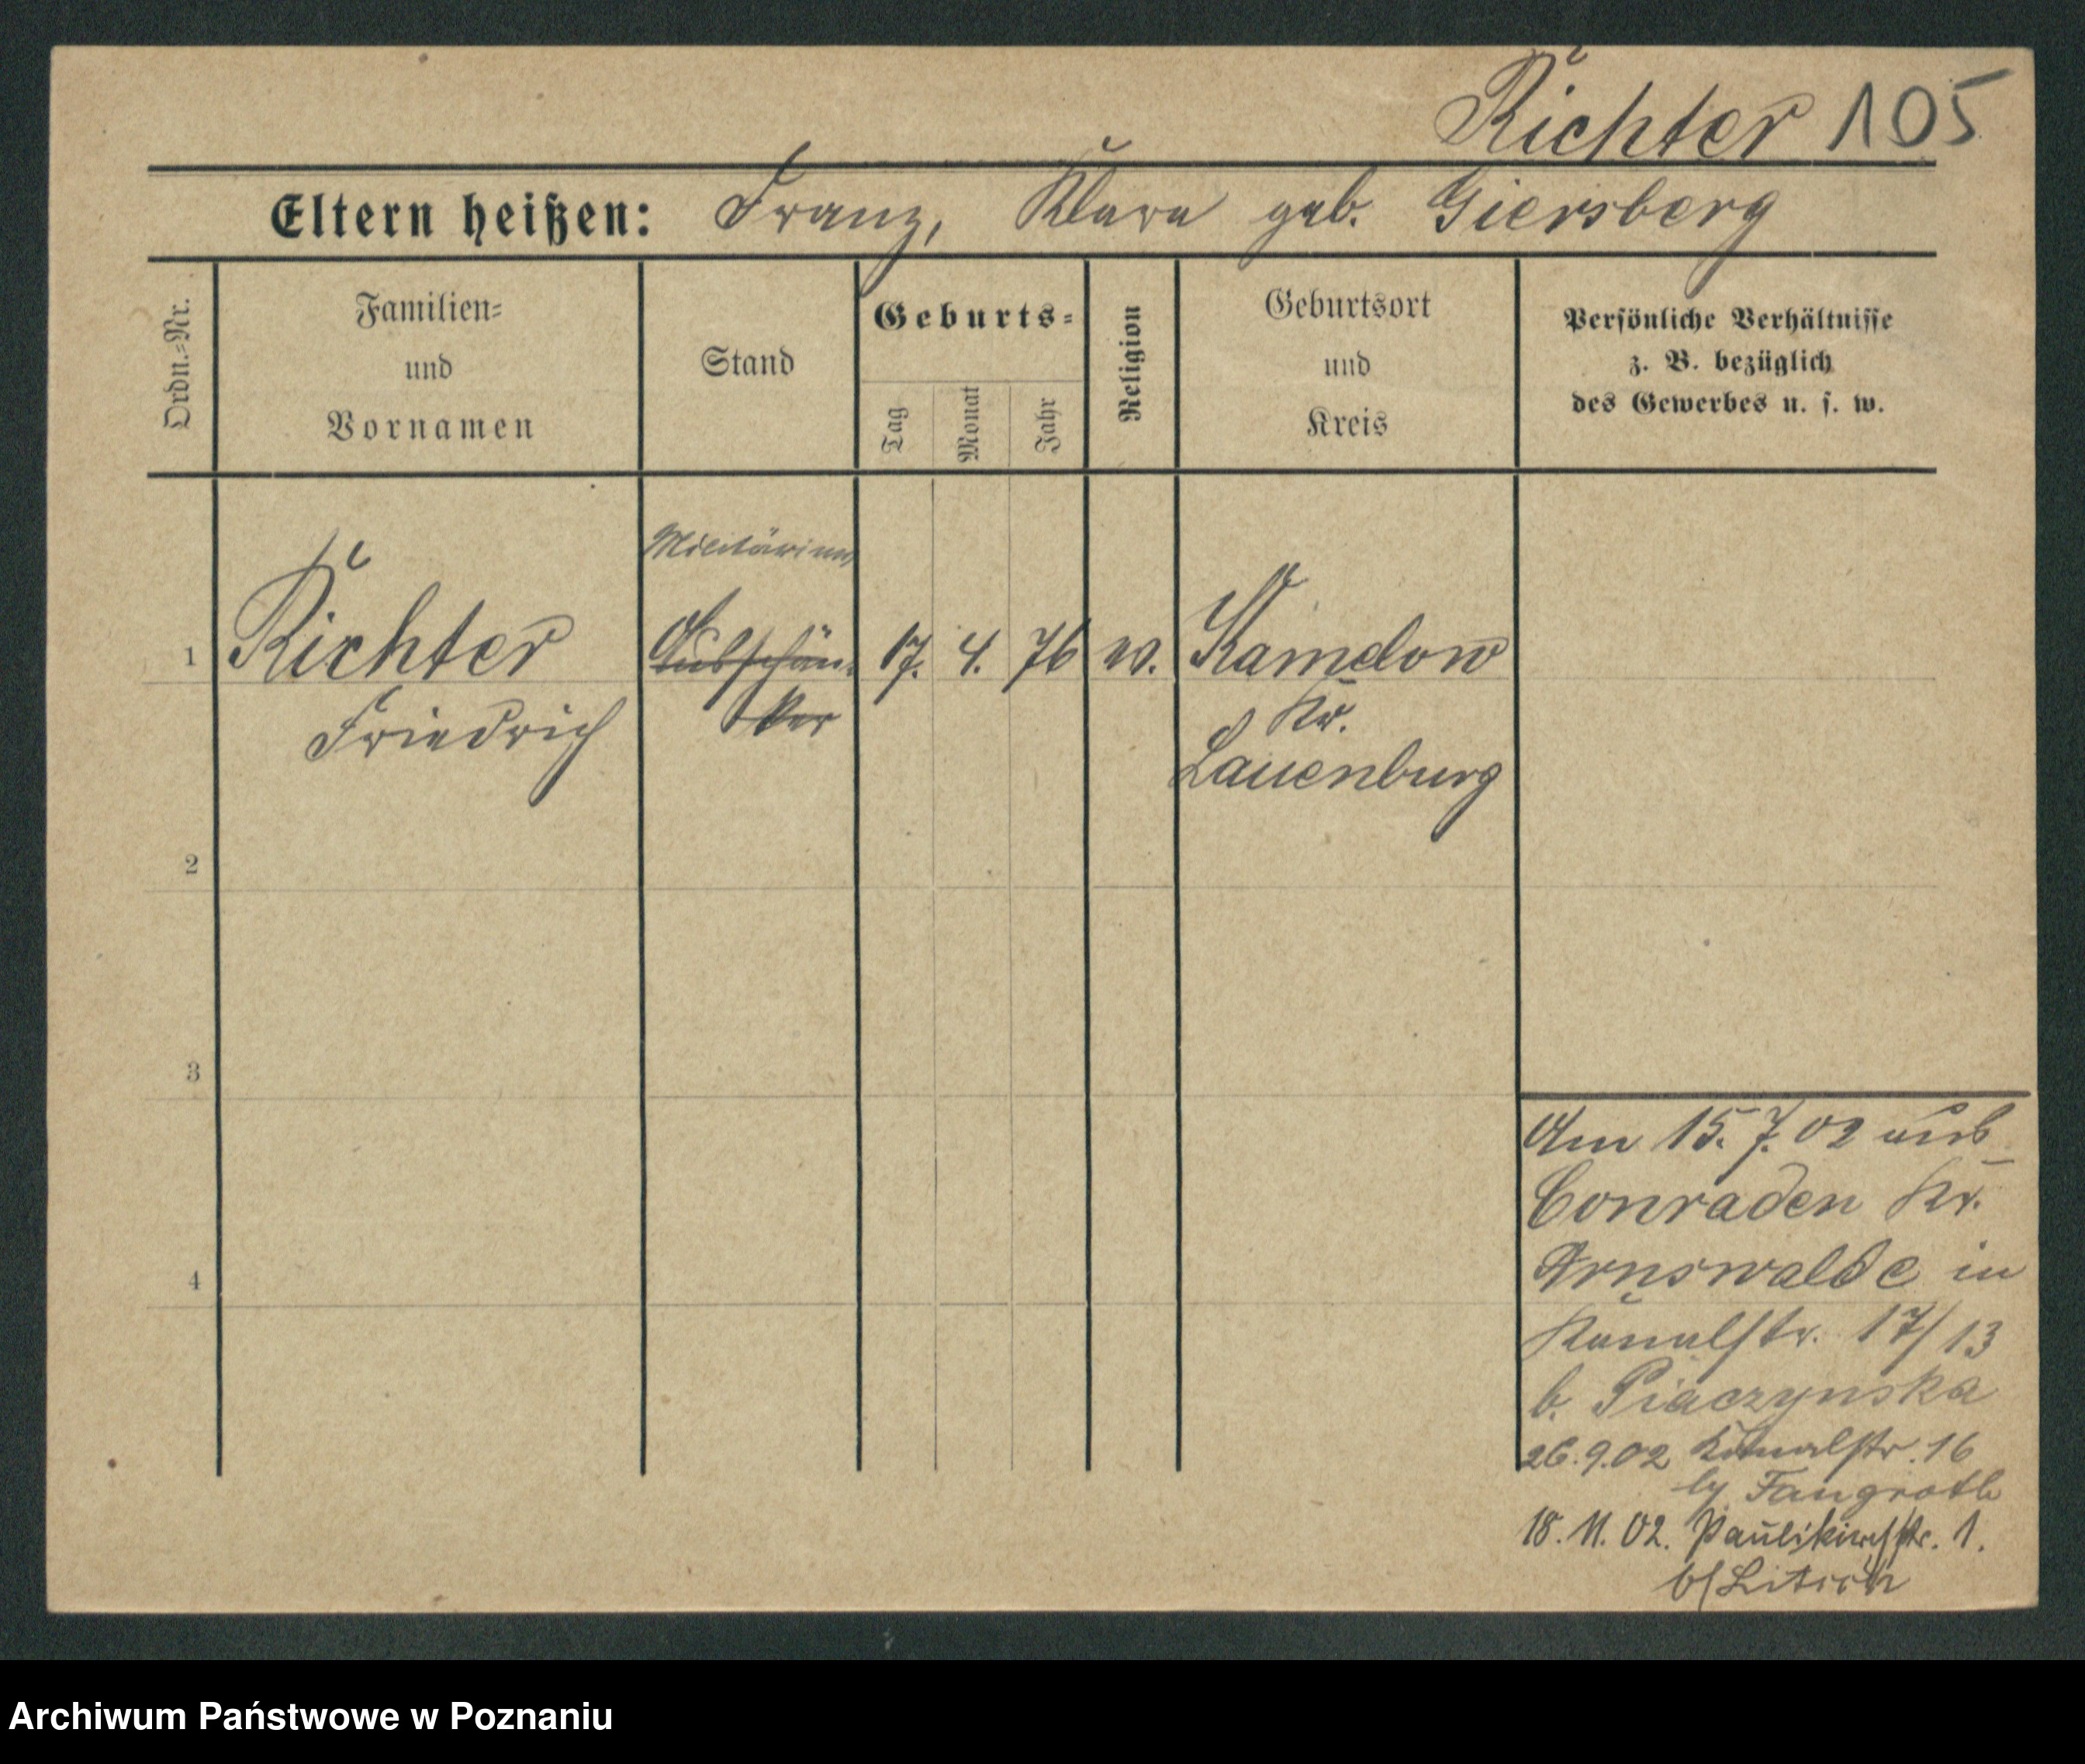 Richter 105
Eltern heißen: Franz, Klara geb. Giersberg
Ordn.=Nr.
Familien=
und
Vornamen
Stand
Geburts=
Tag
Monat
Jahr
Religion
Geburtsort
und
Kreis
Persönliche Verhältnisse
z. B. bezüglich
des Gewerbes u. s. w.
1 Richter 17. 4. 76 Kamelow
Friedrich
Kr.
Lauenburg
2
3
4
Am 15.7.02 aus
Conraden Kr.
Arnswalde in
Kanalstr. 17/13
b. Piaczynska
26.9.02 Kanalstr. 16
Fangroth
18.11.02. Paulikirchstr. 1.
Archiwum Państwowe w Poznaniu